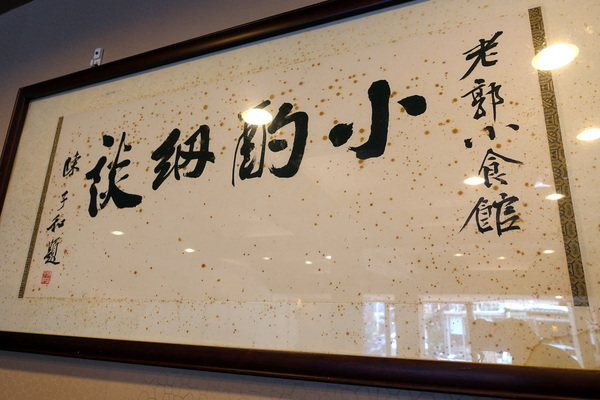 老郭小食館
小酌細談
陳子和題